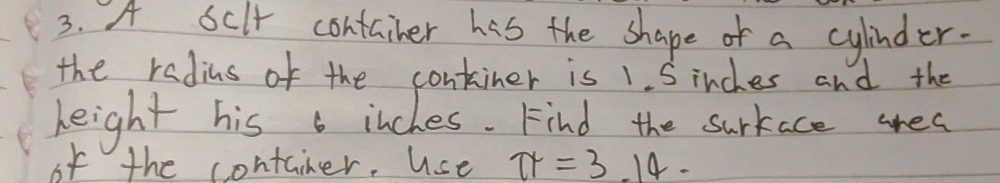 3. A salt container has the shape of a cylinder.
the radius of the container is 1.5 inches and the
height his 6 inches. Find the surface area
of the container. Use π = 3.14.